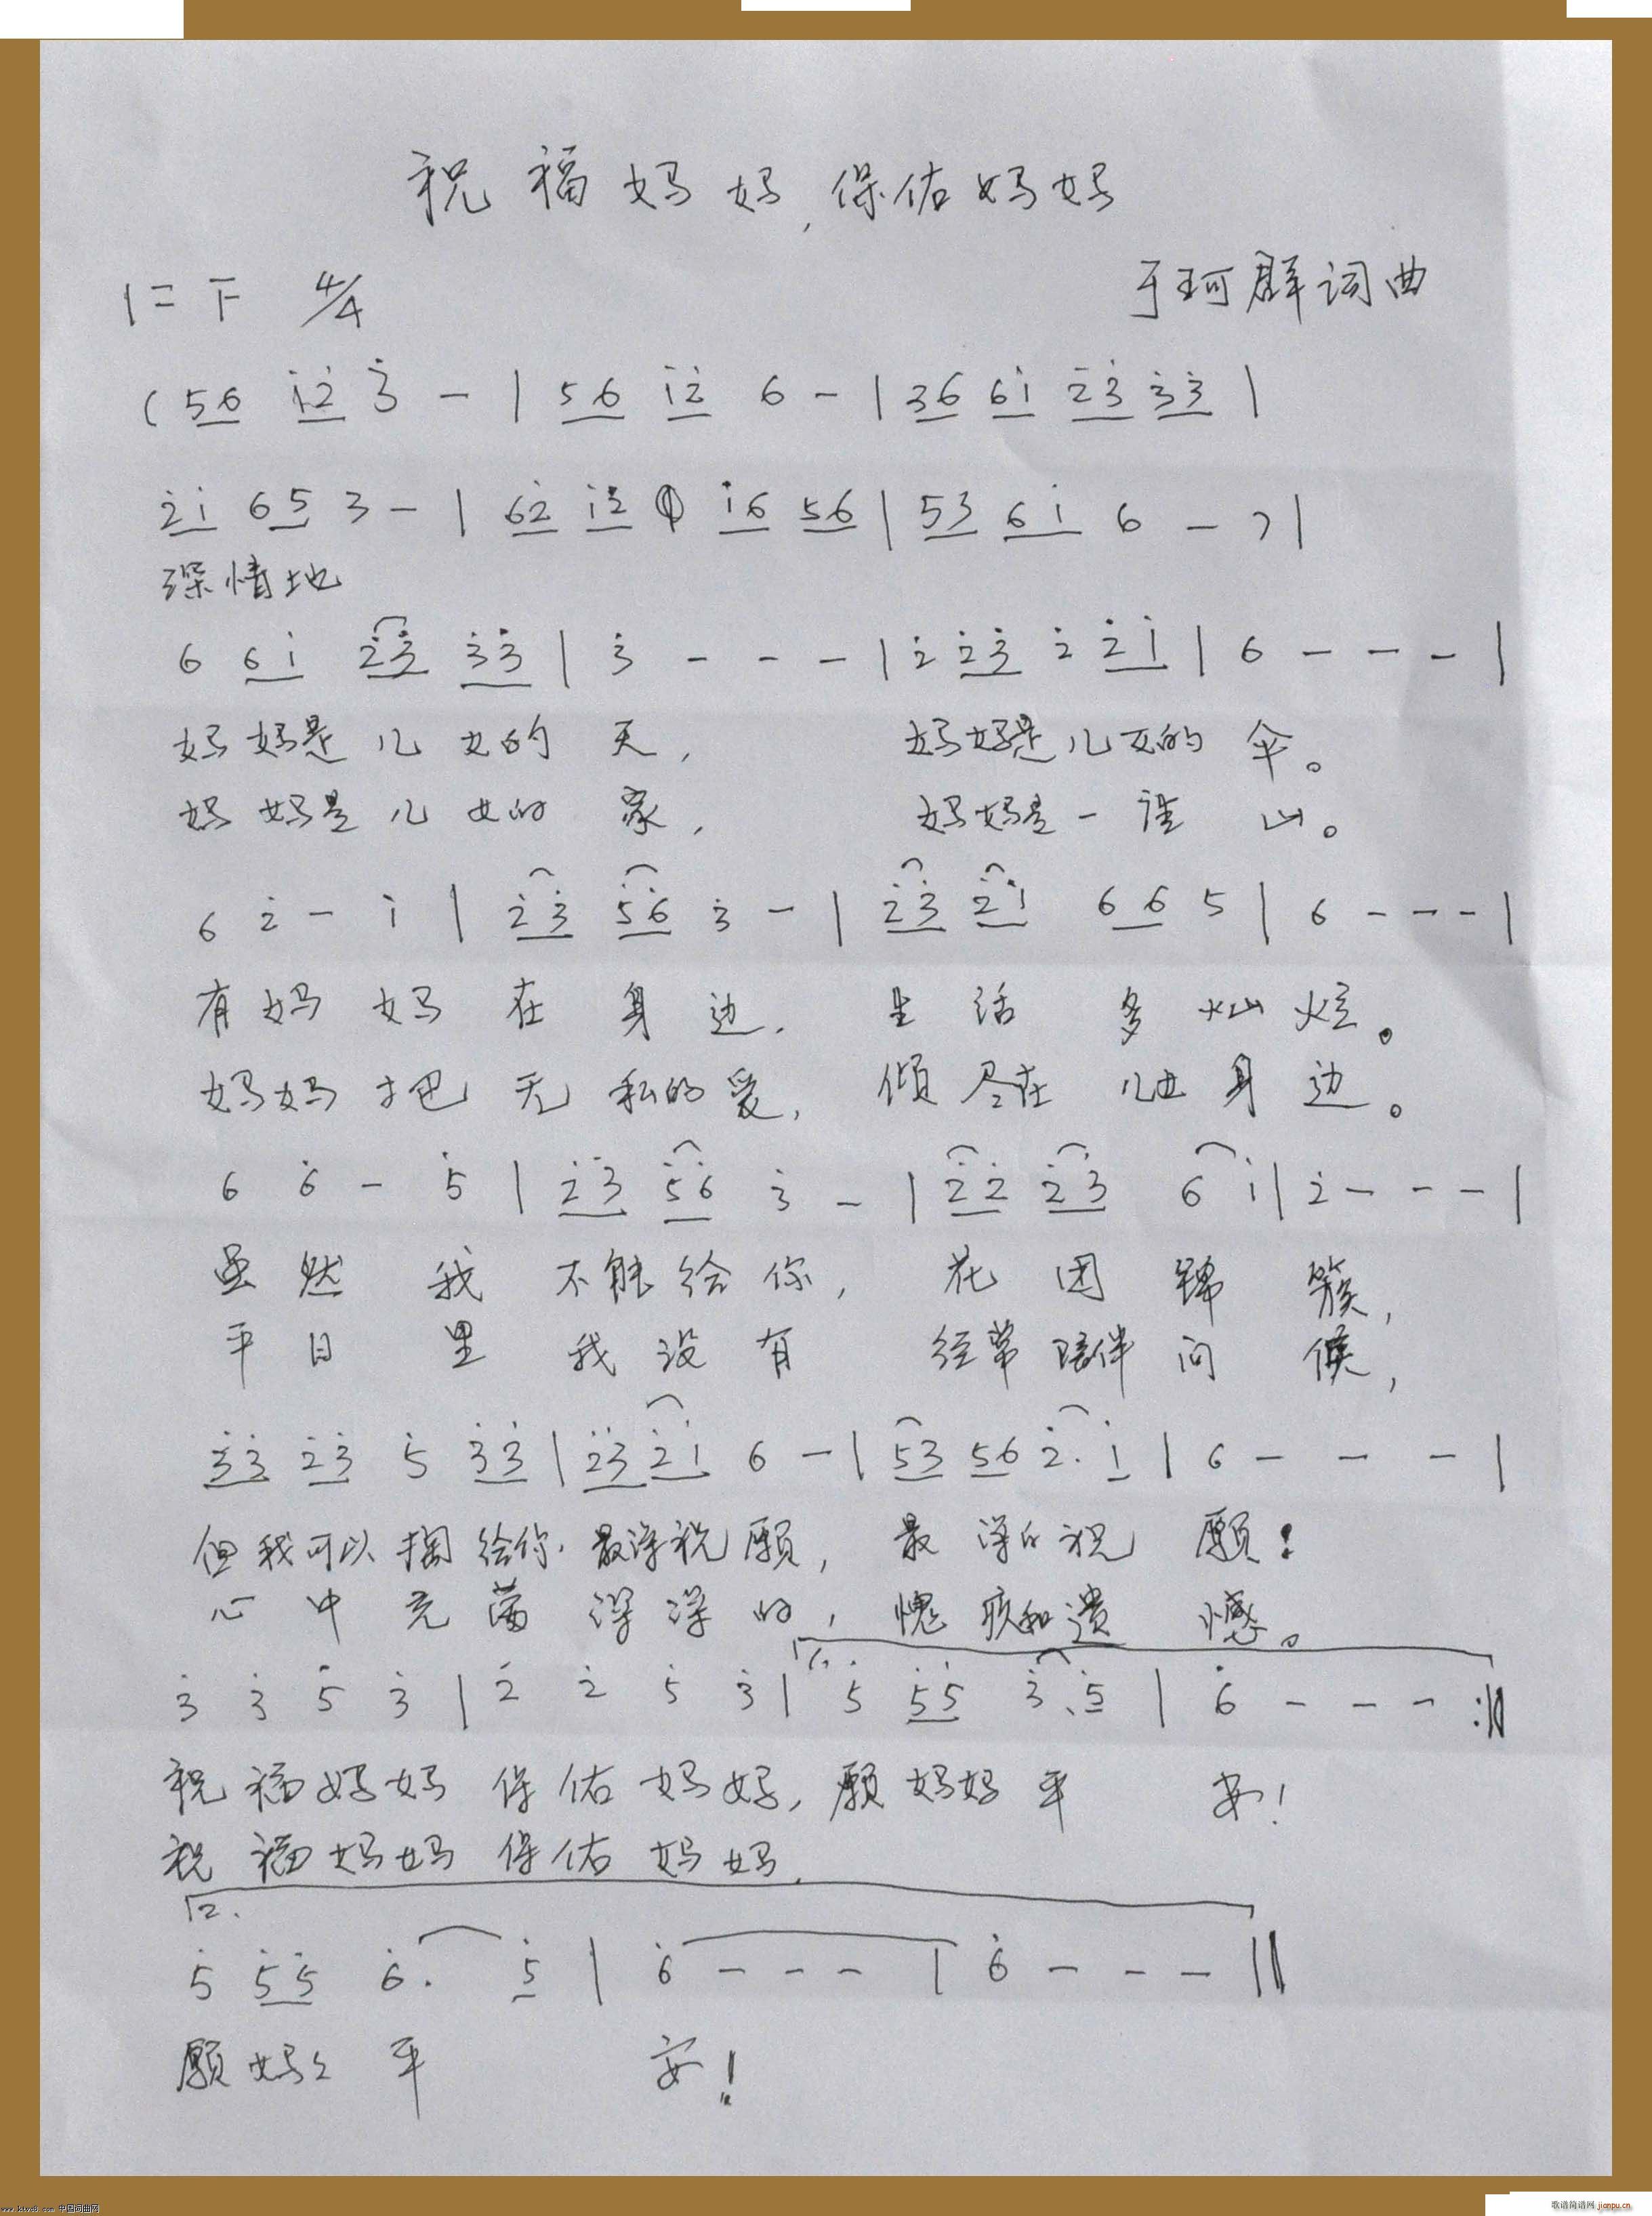 祝福妈妈,保佑妈妈
1=F 4/4 于珂群词曲
(56 i̇2̇ 3̇ - | 56 i̇2̇ 6 - | 36 6i̇ 2̇3̇ 3̇3̇ |
2̇i̇ 65 3 - | 62̇ i̇2̇ i̇6 56 | 53 6i̇ 6 - ) |
深情地
6 6i̇ 2̇3̇ 3̇3̇ | 3̇ - - - | 2̇ 2̇3̇ 2̇ 2̇i̇ | 6 - - - |
妈妈是儿女的天, 妈妈是儿女的伞。
妈妈是儿女的家, 妈妈是一座山。
6 2̇ - i̇ | 2̇3̇ 5̇6̇ 3̇ - | 2̇3̇ 2̇i̇ 66 5 | 6 - - - |
有妈妈在身边. 生活多灿烂。
妈妈把无私的爱, 倾尽在儿女身边。
6 6̇ - 5̇ | 2̇3̇ 5̇6̇ 3̇ - | 2̇2̇ 2̇3̇ 6 i̇ | 2̇ - - - |
虽然我不能给你, 花团锦簇,
平日里我没有 经常陪伴问候,
3̇3̇ 2̇3̇ 5̇ 3̇3̇ | 2̇3̇ 2̇i̇ 6 - | 53 56 2̇. i̇ | 6 - - - |
但我可以捐给你.最深祝愿, 最深的祝愿!
心中充满深深的, 愧疚和遗憾。
3̇ 3̇ 5̇ 3̇ | 2̇ 2̇ 5̇ 3̇ | 1. 5̇ 5̇5̇ 3̇. 5̇ | 6̇ - - - :||
祝福妈妈保佑妈妈,愿妈妈平安!
祝福妈妈保佑妈妈,
2.
5̇ 5̇5̇ 6̇. 5̇ | 6̇ - - - | 6̇ - - - ||
愿妈々平安!
www.ktvc8.com 中国词曲网
歌谱简谱网 jianpu.cn